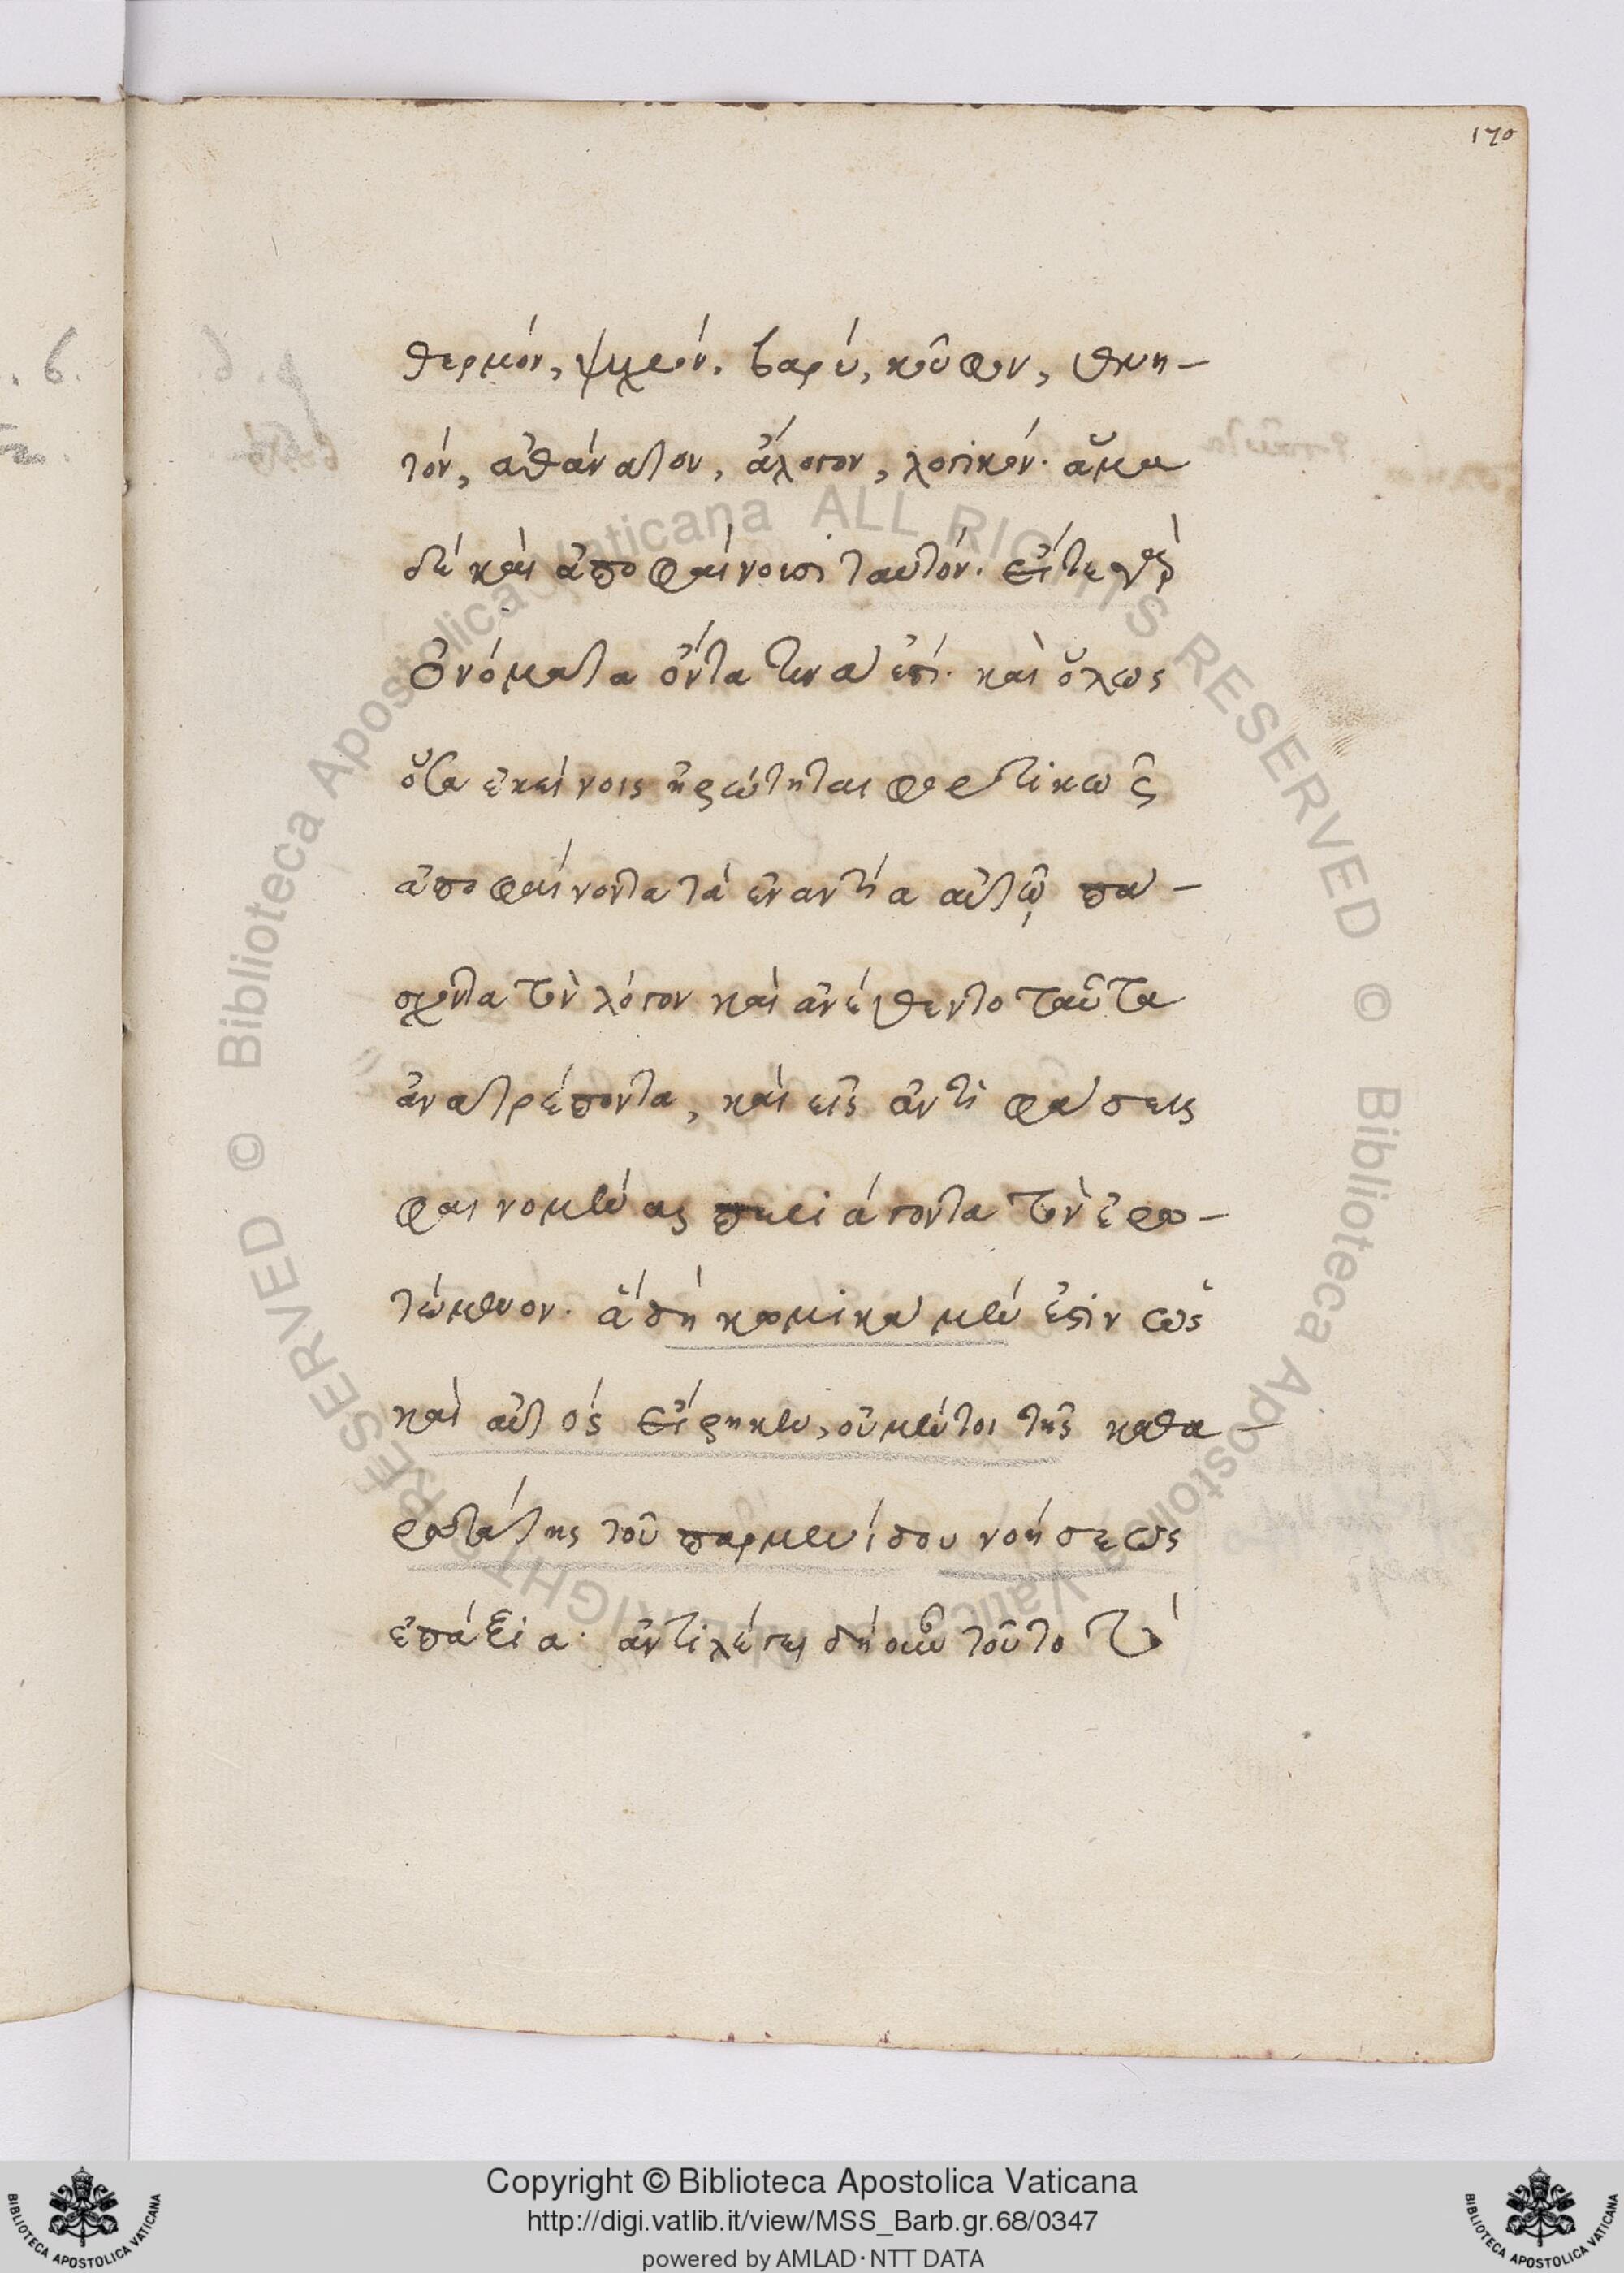 170
θερμόν, ψυχρόν. βαρύ, κοῦφον, θνη-
τόν, ἀθάνατον, ἄλογον, λογικόν· ἅμα
δὲ καὶ ἀποφαίνουσι ταυτόν. εἴτε γὰρ
ὀνόματα ὄντα τινά ἐστι· καὶ ὅλως
ὅσα ἐκείνοις ἠρώτηται φορτικῶς
ἀποφαίνοντα τὰ ἐναντία αὐτῷ πά-
σχοντα τὸν λόγον καὶ ἀνέθεντο ταῦτα
ἀνατρέποντα, καὶ εἰς ἀντιφάσεις
φαινομένας περιάγοντα τὸν ἐρω-
τώμενον. ἃ δὴ κωμικὰ μέν ἐστιν ὡς
καὶ αὐτός εἴρηκεν, οὐ μέντοι τῆς καθα-
ρωτάτης τοῦ παρμενίδου νοήσεως
ἐπάξια· ἀντιλέγει δὴ οὖν τοῦτο τὸ
Biblioteca Apostolica Vaticana ALL RIGHTS RESERVED ©
Biblioteca Apostolica Vaticana ALL RIGHTS RESERVED ©
Copyright © Biblioteca Apostolica Vaticana
http://digi.vatlib.it/view/MSS_Barb.gr.68/0347
powered by AMLAD · NTT DATA
BIBLIOTECA APOSTOLICA VATICANA
BIBLIOTECA APOSTOLICA VATICANA